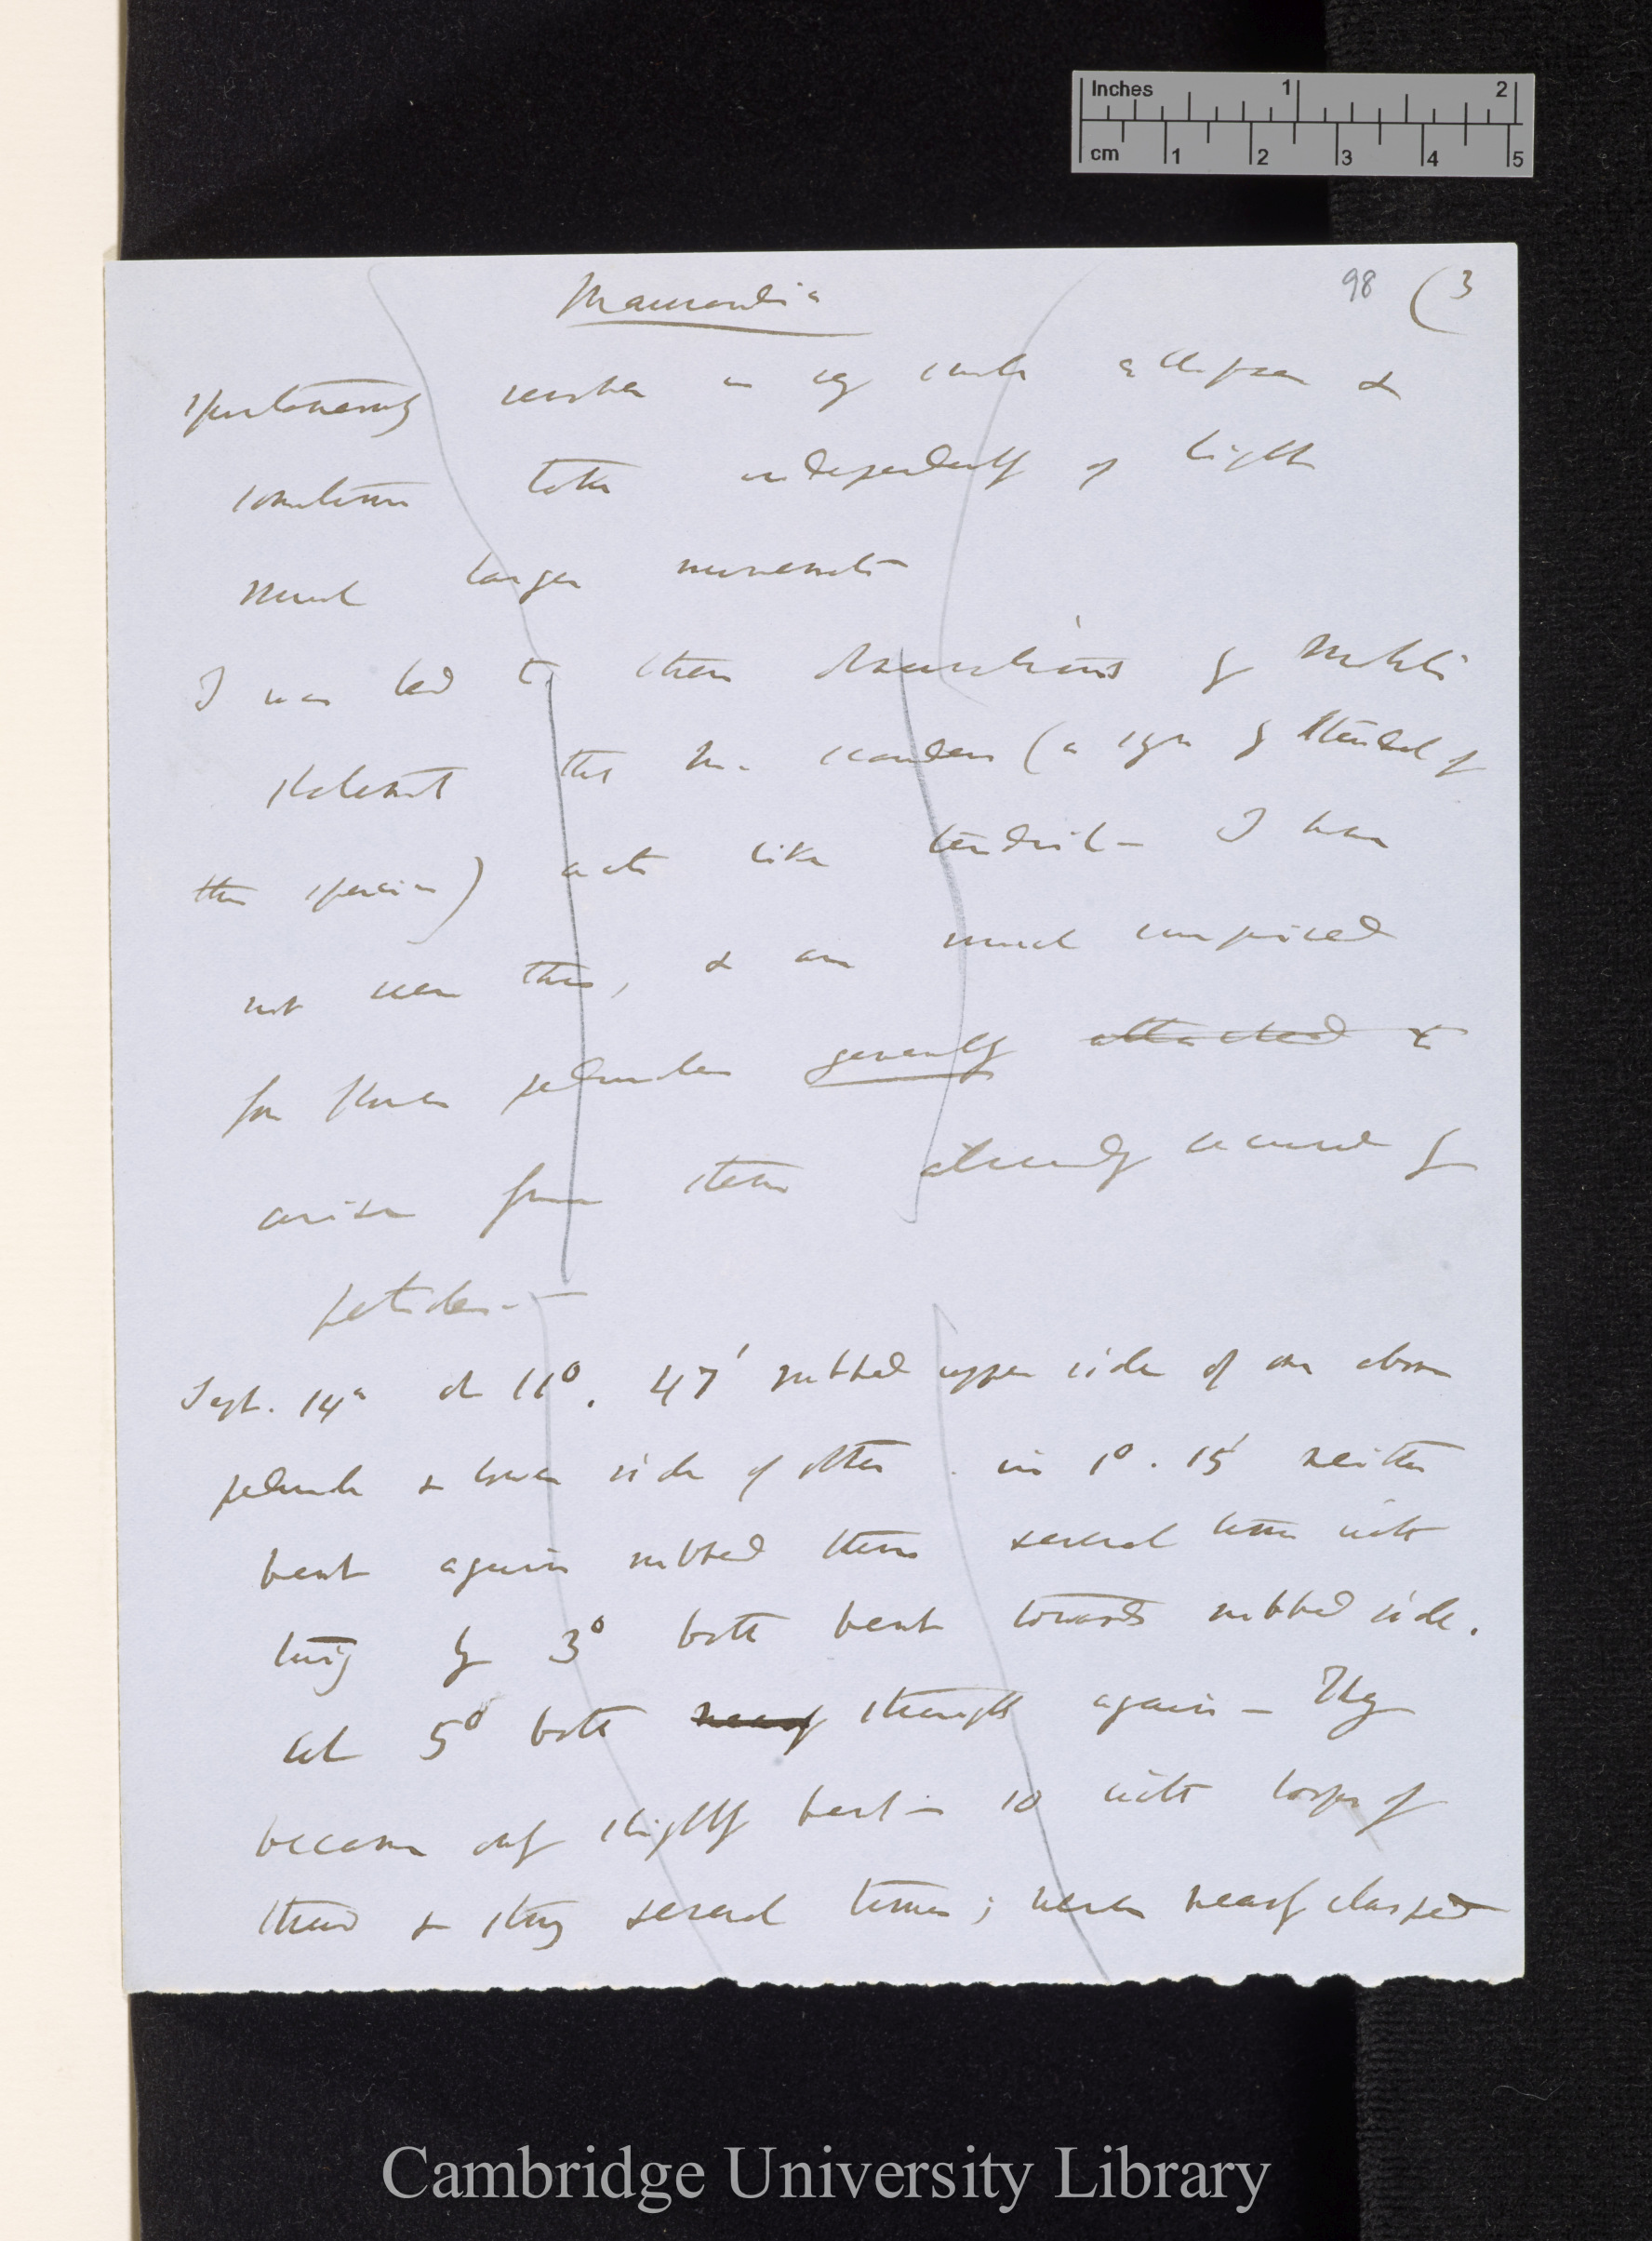 Inches 1 2
cm 1 2 3 4 5
98 (3
Maurandia
spontaneously revolve in egg circle ellipses &
sometimes take independently of light
much larger movements
I was led to these observations by Mohl's
statement that M. scandens (a syn of
this species) acts like tendril — I have
not seen this, & am much surprised
for Flower peduncles generally attached &
arise from stems already secured by
petioles. —
Sept. 14th at 11°. 47' rubbed upper side of one above
peduncle & lower side of other. in 1°. 15' neither
bent again rubbed them several times with
twig by 3° both bent towards rubbed side.
At 5° both nearly straight again — They
become only slightly bent — so with loops of
thread & string several times; never nearly clasped
Cambridge University Library